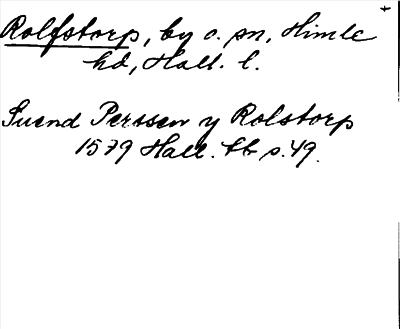 Rolfstorp, by o. sn, Himle
hd, Hall. l.
Suend Perssen y Rolstorp
1579 Hall. tb s. 49.